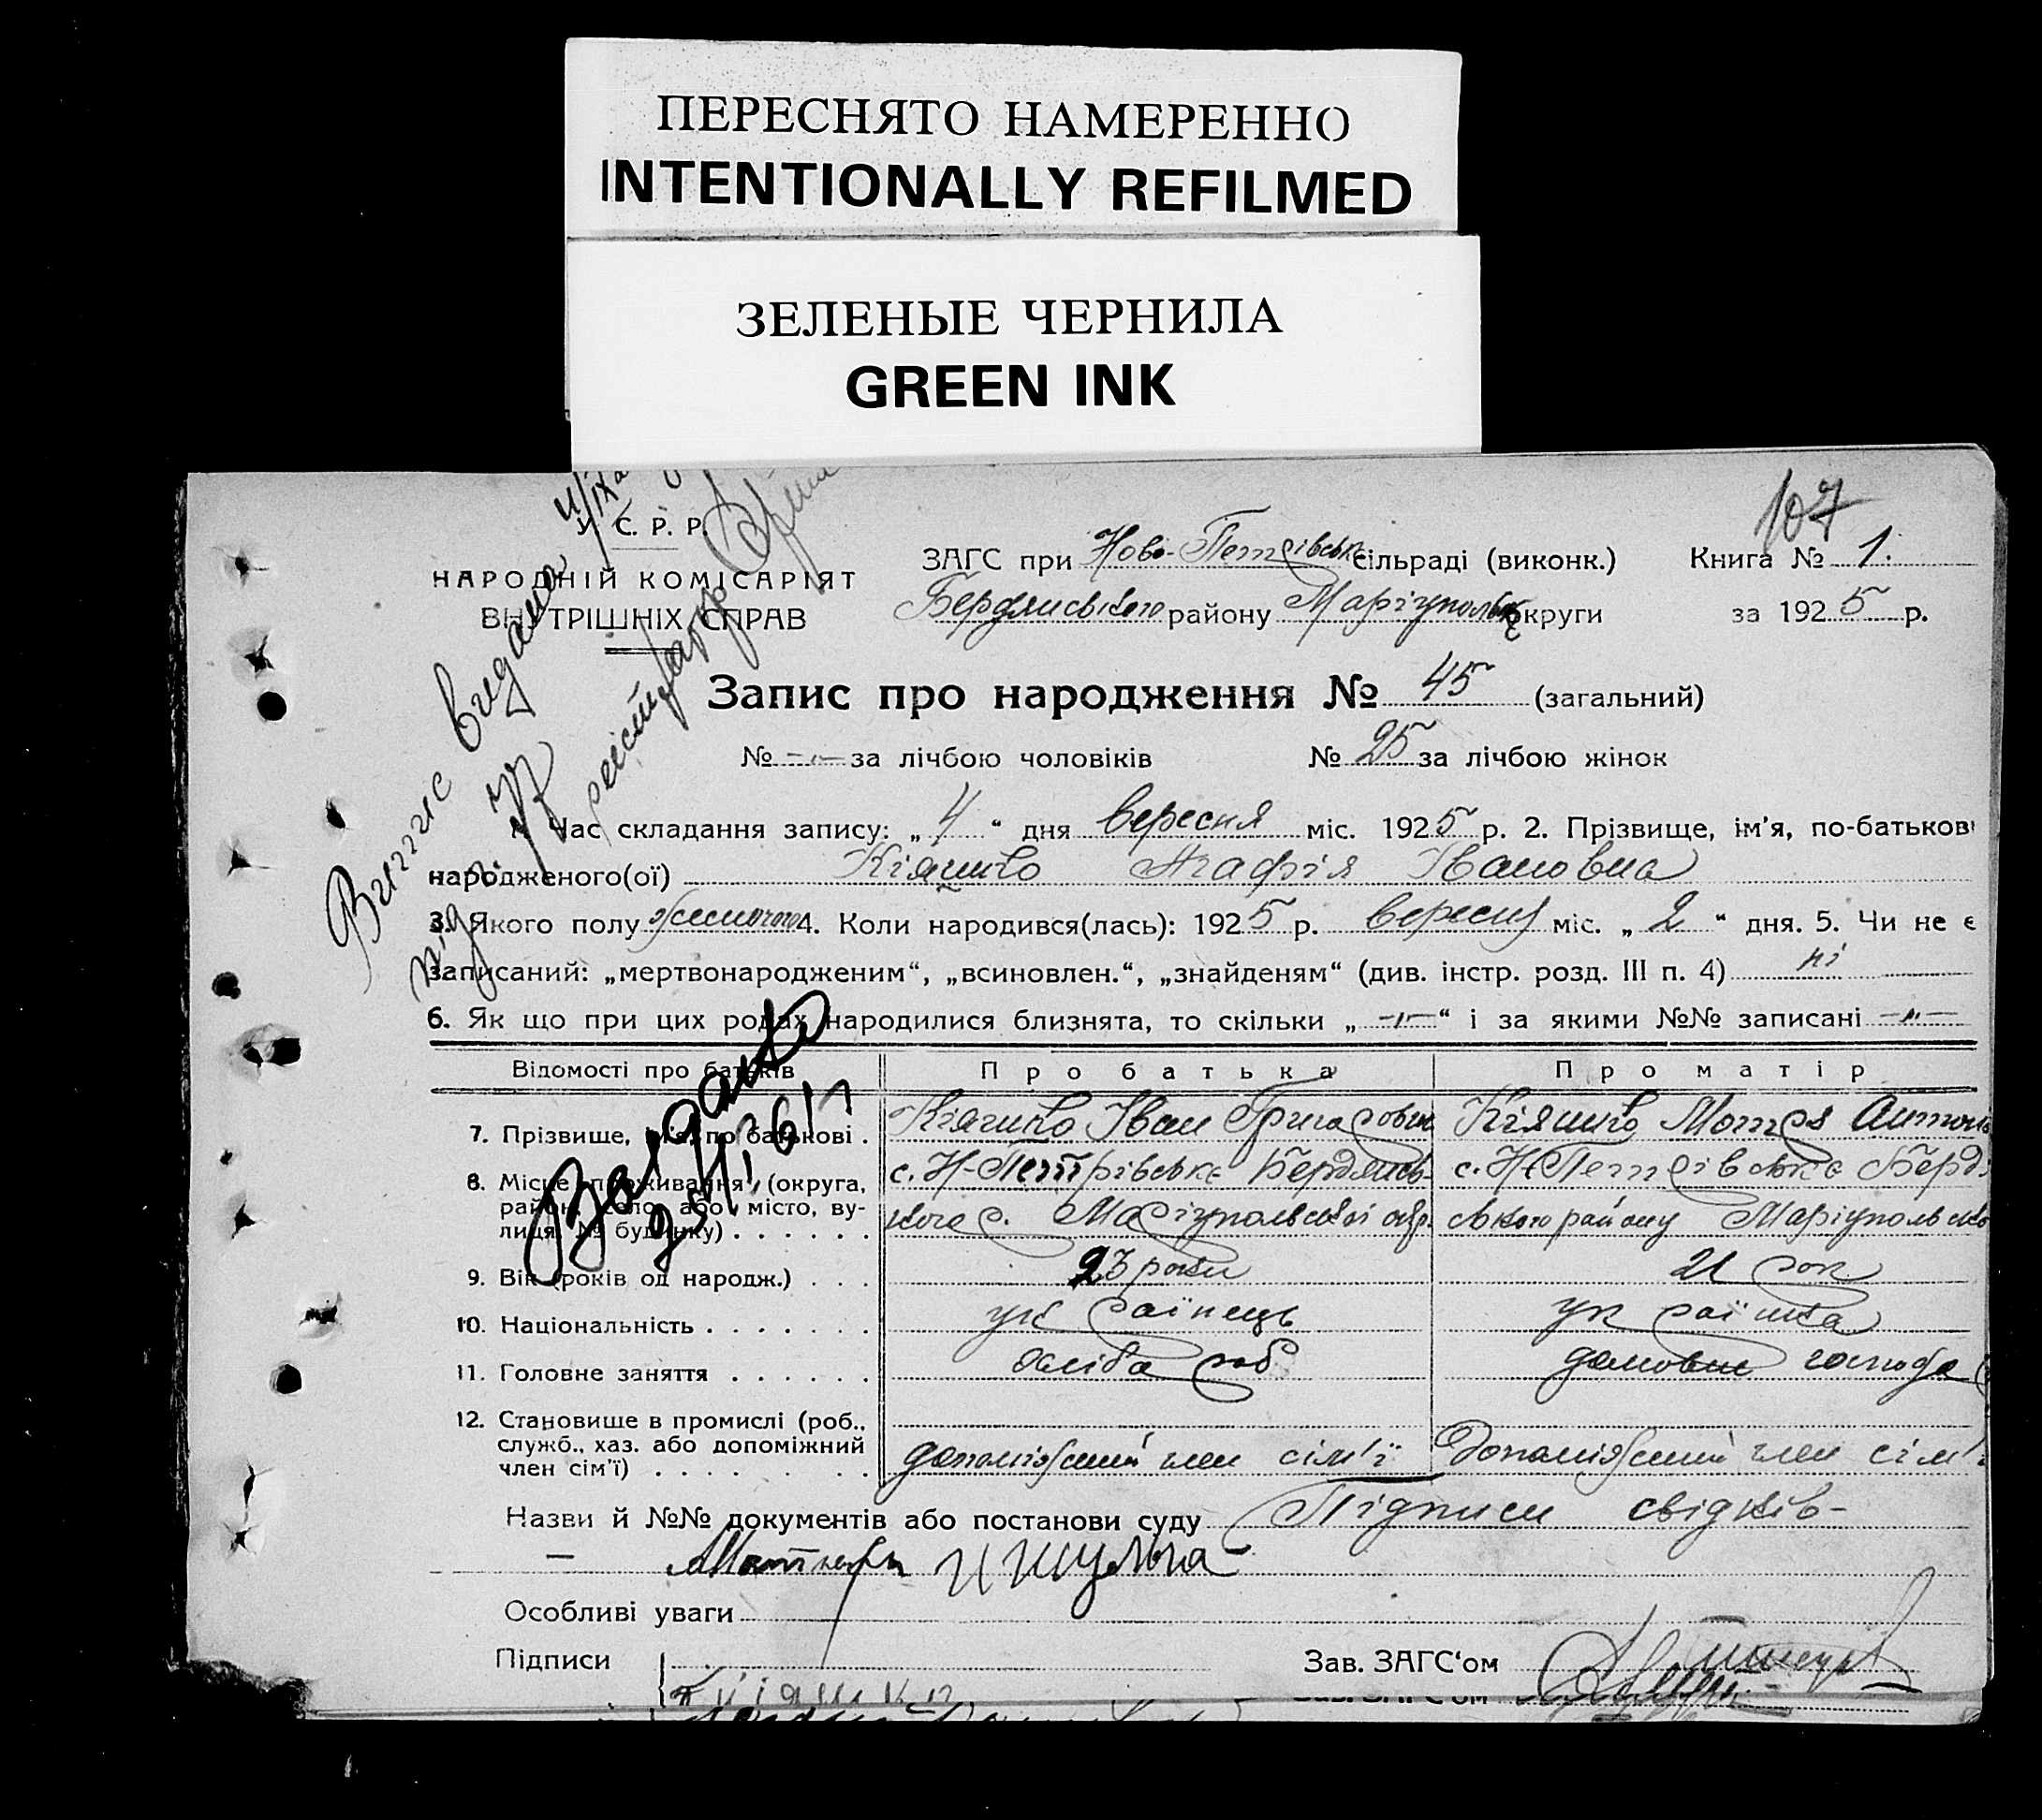 ПЕРЕСНЯТО НАМЕРЕННО
INTENTIONALLY REFILMED
ЗЕЛЕНЫЕ ЧЕРНИЛА
GREEN INK
107
У. С. Р. Р.
НАРОДНІЙ КОМІСАРІЯТ
ВНУТРІШНІХ СПРАВ
ЗАГС при Ново-Петрівськ сільраді (виконк.) Книга № 1.
Бердянського району Маріупольськ округи за 1925 р.
Випис видана
під
реєстр
Запис про народження № 45 (загальний)
№ -"- за лічбою чоловіків № 25 за лічбою жінок
1. Час складання запису: „ 4 “ дня вересня міс. 1925 р. 2. Прізвище, ім'я, по-батькові
народженого(ої) Кіяшко Агафія Івановна
3. Якого полу жіночого 4. Коли народився(лась): 1925 р. вересня міс. „ 2 “ дня. 5. Чи не є
записаний: „мертвонародженим“, „всиновлен.“, „знайденям“ (див. інстр. розд. III п. 4) ні
6. Як що при цих родах народилися близнята, то скільки „ -"- “ і за якими №№ записані -"-
Відомості про батьків Про батька Про матір
7. Прізвище, ім'я, по батькові . Кіяшко Іван Григорович Кіяшко Мотря Антонів
8. Місце проживання (округа, с. Н-Петрівське Бердянсь- с. Н-Петрівське Бердя
район, село, або місто, ву- кого р. Маріупольської окр. ського району Маріупольсько
лиця, № будинку) . . . . . .
9. Вік (років од народж.) . . . 23 роки 21 рок
10. Національність . . . . . . . українець українка
11. Головне заняття . . . . . . хліба роб домовне господа
12. Становище в промислі (роб.,
служб., хаз. або допоміжний допоміжний член сім'ї Допоміжний член сім'ї
член сім'ї) . . . . . . . .
Назви й №№ документів або постанови суду Підписи свідків-
И Шульга
Особливі уваги
Підписи Зав. ЗАГС'ом
Кіяшко Зав. ЗАГС'ом